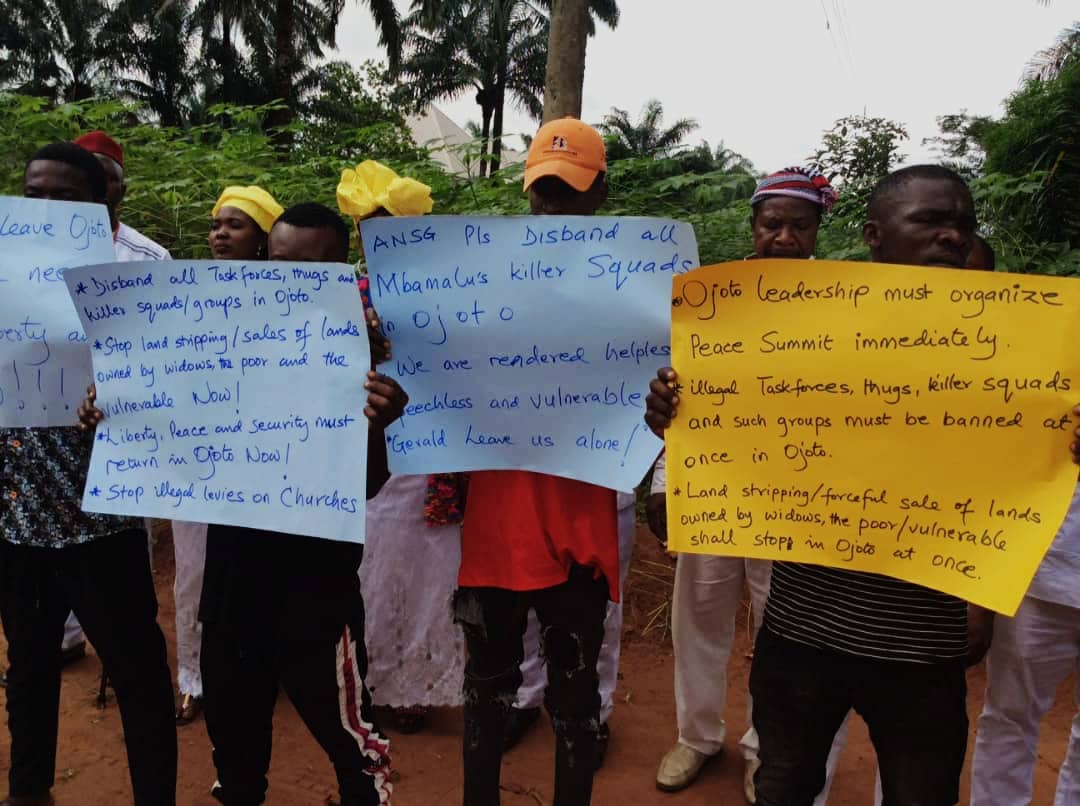 Leave Ojoto
nee
berty a
! ! !
* Disband all Taskforces, thugs and
killer squads/groups in Ojoto.
* Stop land stripping/sales of lands
owned by widows, the poor and the
vulnerable Now!
* Liberty, Peace and Security must
return in Ojoto Now!
* Stop illegal levies on Churches
ANSG Pls Disband all
Mbamalu's killer Squads
in Ojoto
We are rendered helpless
speechless and vulnerable
"Gerald Leave us alone!"
Ojoto leadership must organize
Peace Summit immediately.
* illegal Taskforces, thugs, killer squads
and such groups must be banned at
once in Ojoto.
* Land stripping/forceful sale of lands
owned by widows, the poor/vulnerable
shall stop in Ojoto at once.